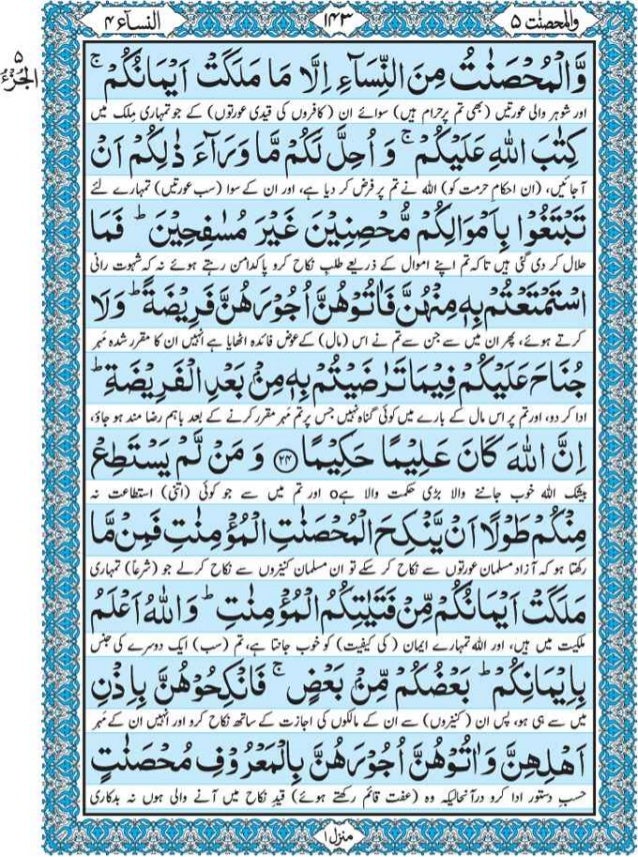 والمحصنت ۵ ۱۴۳ النسآء ۴
۵
الجزء
وَّالْمُحْصَنٰتُ مِنَ النِّسَآءِ اِلَّا مَا مَلَكَتْ اَيْمَانُكُمْ ۚ
اور شوہر والی عورتیں (بھی تم پرحرام ہیں) سوائے ان (کافروں کی قیدی عورتوں) کے جو تمہاری مِلک میں
كِتٰبَ اللّٰهِ عَلَيْكُمْ ۚ وَ اُحِلَّ لَكُمْ مَّا وَرَآءَ ذٰلِكُمْ اَنْ
آجائیں، (ان احکامِ حرمت کو) اللہ نے تم پر فرض کر دیا ہے، اور ان کے سوا (سب عورتیں) تمہارے لئے
تَبْتَغُوْا بِاَمْوَالِكُمْ مُّحْصِنِيْنَ غَيْرَ مُسٰفِحِيْنَ ؕ فَمَا
حلال کر دی گئی ہیں تاکہ تم اپنے اموال کے ذریعے طلبِ نکاح کرو پاکدامن رہتے ہوئے نہ کہ شہوت رانی
اسْتَمْتَعْتُمْ بِهٖ مِنْهُنَّ فَاٰتُوْهُنَّ اُجُوْرَهُنَّ فَرِيْضَةً ؕ وَلَا
کرتے ہوئے، پھر ان میں سے جن سے تم نے اس (مال) کے عوض فائدہ اٹھایا ہے انہیں ان کا مقرر شدہ مَہر
جُنَاحَ عَلَيْكُمْ فِيْمَا تَرٰضَيْتُمْ بِهٖ مِنْۢ بَعْدِ الْفَرِيْضَةِ ؕ
ادا کر دو، اور تم پر اس مال کے بارے میں کوئی گناہ نہیں جس پر تم مَہر مقرر کرنے کے بعد باہم رضا مند ہو جاؤ،
اِنَّ اللّٰهَ كَانَ عَلِيْمًا حَكِيْمًا ﴿۲۴﴾ وَ مَنْ لَّمْ يَسْتَطِعْ
بیشک اللہ خوب جاننے والا بڑی حکمت والا ہےo اور تم میں سے جو کوئی (اتنی) استطاعت نہ
مِنْكُمْ طَوْلًا اَنْ يَّنْكِحَ الْمُحْصَنٰتِ الْمُؤْمِنٰتِ فَمِنْ مَّا
رکھتا ہو کہ آزاد مسلمان عورتوں سے نکاح کر سکے تو ان مسلمان کنیزوں سے نکاح کرلے جو (شرعاً) تمہاری
مَلَكَتْ اَيْمَانُكُمْ مِّنْ فَتَيٰتِكُمُ الْمُؤْمِنٰتِ ؕ وَاللّٰهُ اَعْلَمُ
ملکیت میں ہیں، اور اللہ تمہارے ایمان (کی کیفیت) کو خوب جانتا ہے، تم (سب) ایک دوسرے کی جنس
بِاِيْمَانِكُمْ ؕ بَعْضُكُمْ مِّنْۢ بَعْضٍ ۚ فَانْكِحُوْهُنَّ بِاِذْنِ
میں سے ہی ہو، پس ان (کنیزوں) سے ان کے مالکوں کی اجازت کے ساتھ نکاح کرو اور انہیں ان کے مَہر
اَهْلِهِنَّ وَاٰتُوْهُنَّ اُجُوْرَهُنَّ بِالْمَعْرُوْفِ مُحْصَنٰتٍ
حسبِ دستور ادا کرو درآنحالیکہ وہ (عفت قائم رکھتے ہوئے) قیدِ نکاح میں آنے والی ہوں نہ بدکاری
منزل ۱